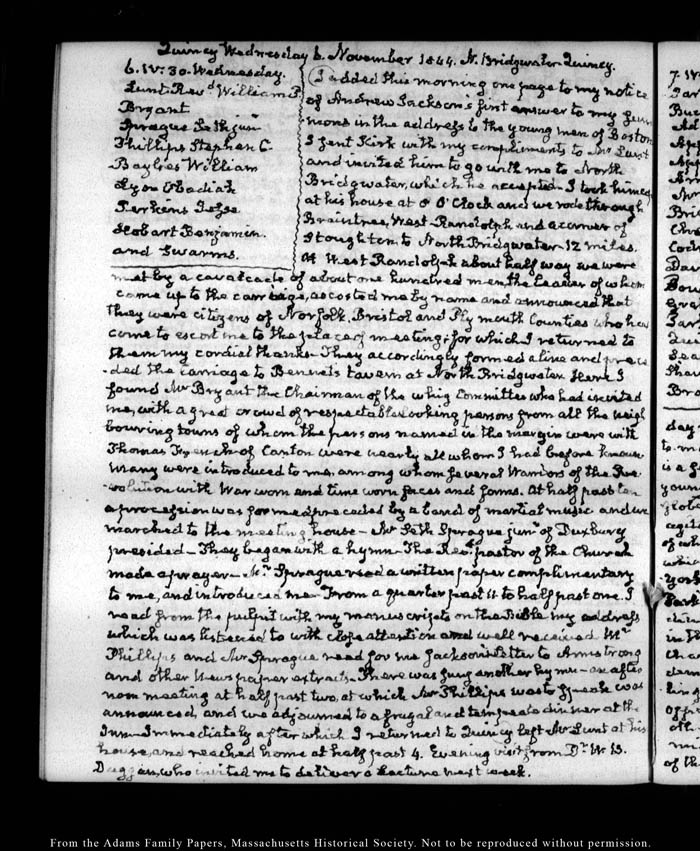 Quincy Wednesday 6. November 1844. N. Bridgwater-Quincy.
6. IV: 30. Wednesday.
Lunt Rev.d William P.
Bryant
Sprague Seth junr
Phillips Stephen C.
Baylies William
Lyon Obadiah
Perkins Jesse
Hobart Benjamin
and Swarms.
I added this morning one page to my notice
of Andrew Jackson's first answer to my
in the address to the young men of Boston
I sent Kirk with my compliments to Mr Lunt
and invited him to go with me to North
Bridgwater, which he accepted. I took him up
at his house at 8 O'Clock and we rode through
Braintree, West Randolph and a corner of
Stoughton to North Bridgwater 12 miles.
At West Randolph about half way we were
met by a cavalcade of about one hundred men, the leader of whom
came up to the carriage, accosted me by name and announced that
they were citizens of Norfolk, Bristol and Plymouth Counties who had
come to escort me to the place of meeting; for which I returned to
them my cordial thanks. They accordingly formed a line and prece
ded the carriage to Bennet's tavern at North Bridgwater. Here I
found Mr Bryant the Chairman of the whig Committee who had invited
me, with a great crowd of respectable looking persons from all the neigh
bouring towns of whom the persons named in the margin were with
Thomas French of Canton were nearly all whom I had before known
many were introduced to me, among whom several Warriors of the Re
volution with War worn and time worn faces and forms. At half past ten
a procession was formed preceded by a band of martial music and we
marched to the meeting house - Mr Seth Sprague junr of Duxbury
presided - They began with a hymn - The Rev. pastor of the Church
made a prayer - Mr Sprague read a written paper complimentary
to me, and introduced me - From a quarter past 11 to half past one. I
read from the pulpit with my manuscripts on the Bible my address
which was listened to with close attention and well received. Mr
Phillips and Mr Sprague read for me Jackson's letter to Armstrong
and other Newspaper extracts - There was sung another hymn - an after
noon meeting at half past two, at which Mr Phillips was to speak was
announced, and we adjourned to a frugal and temperate dinner at the
Inn - Immediately after which I returned to Quincy left Mr Lunt at his
house, and reached home at half past 4. Evening visit from Dr W. B.
Duggan, who invited me to deliver a Lecture next week.
From the Adams Family Papers, Massachusetts Historical Society. Not to be reproduced without permission.